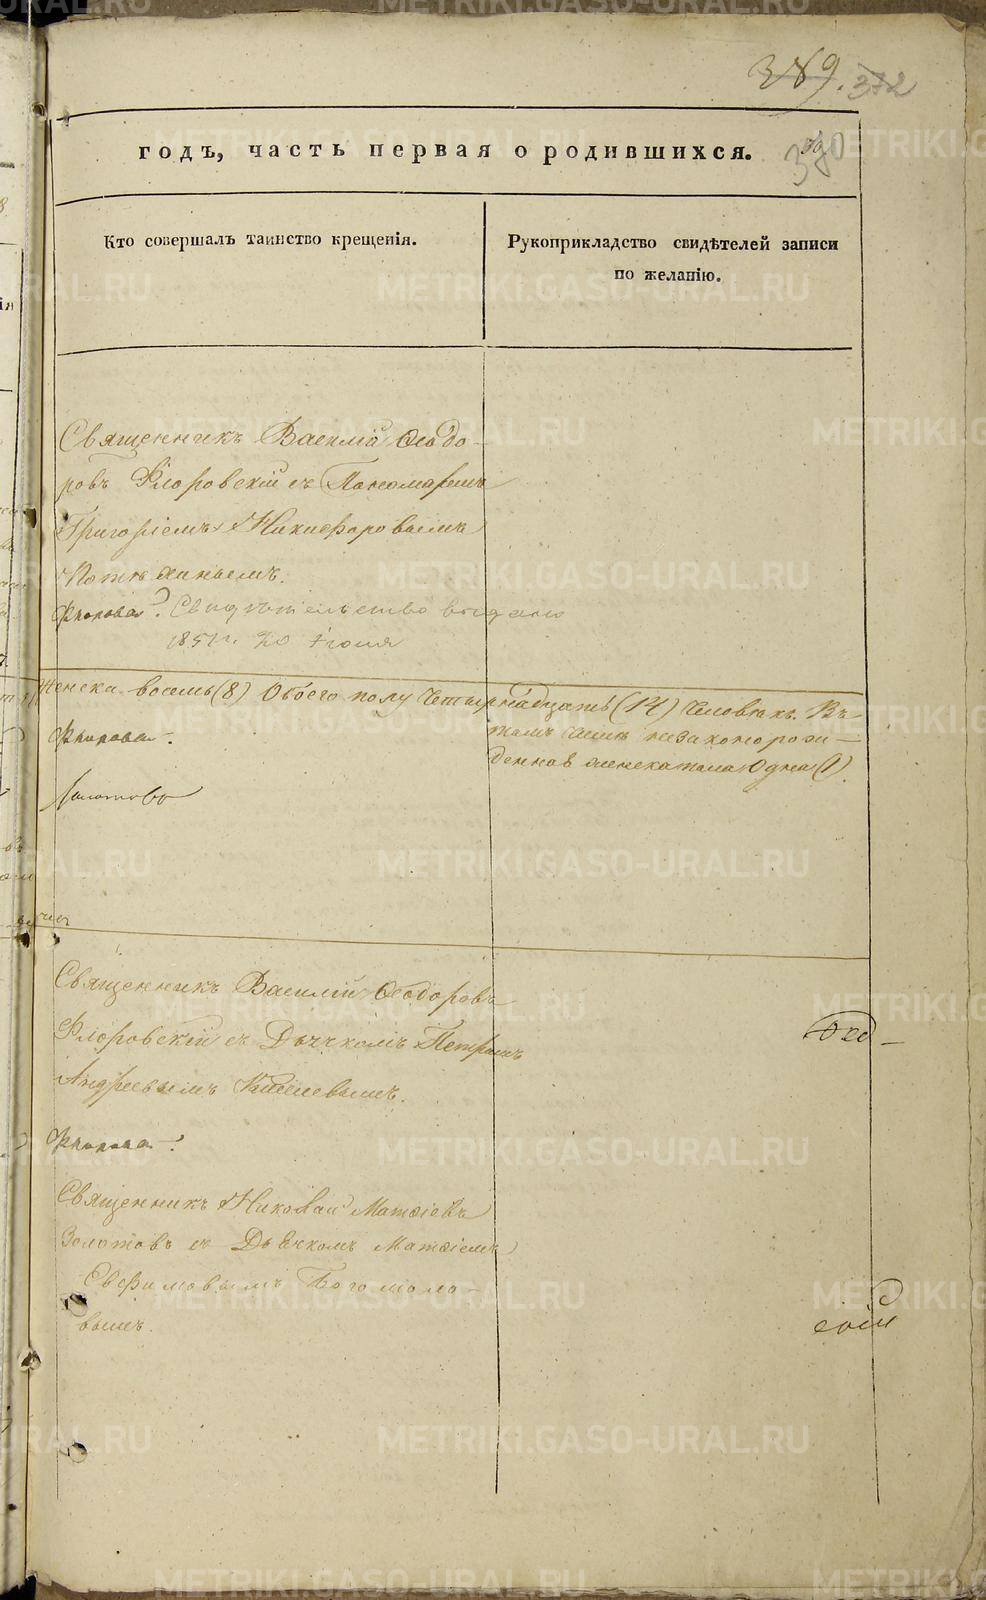 389. 372
годъ, часть первая о родившихся.
380
Кто совершалъ таинство крещенія.
Рукоприкладство свидѣтелей записи
по желанію.
Священникъ Василій Ѳеодо-
ровъ Флоровскій съ Пономаремъ
Григоріемъ Никифоровымъ
Свидѣтельство выдано
1851 г. 20 Іюня
Женска восемь (8) Обоего полу Четырнадцать (14) Человѣкъ. Въ
томъ числѣ незаконорож-
денная женска пола Одна (1)
Священникъ Василій Ѳеодоровъ
Флоровскій съ Дьячкомъ Петромъ
Андреевымъ Киселевымъ.
Священникъ Николай Матѳіевъ
Золотовъ съ Дьячкомъ Матѳіемъ
Евфимовымъ Богомоло-
вымъ.
METRIKI.GASO-URAL.RU